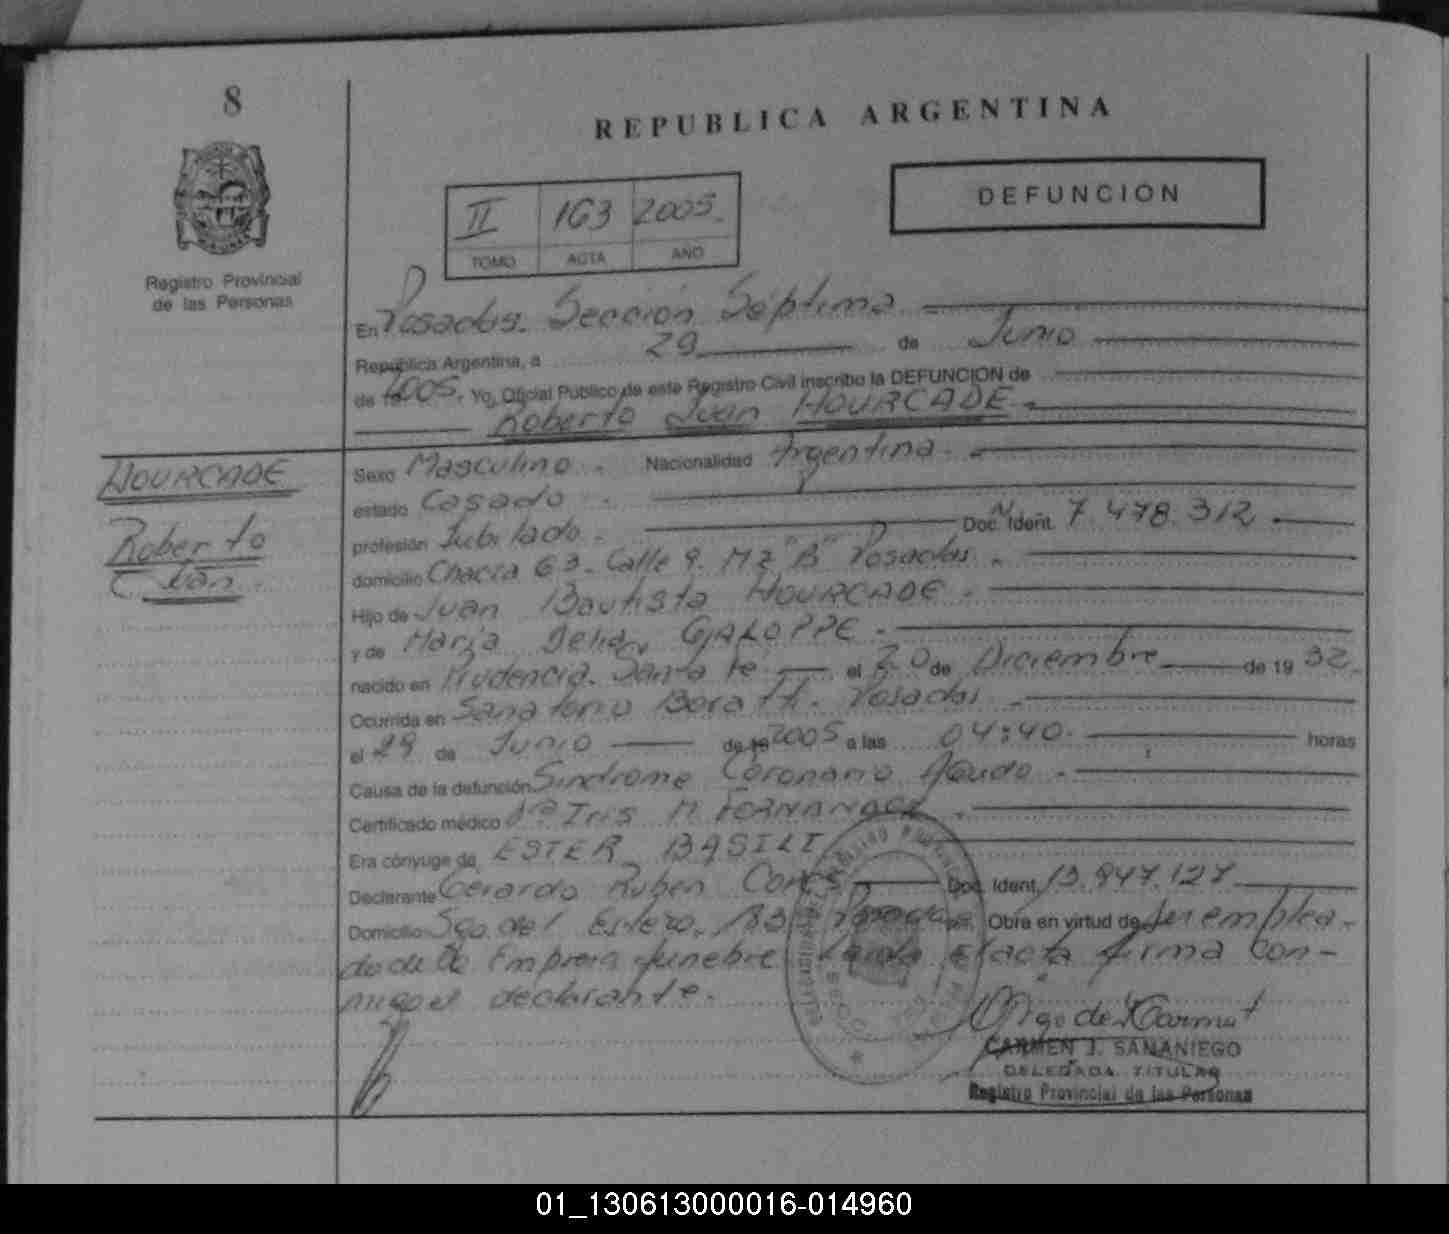 8
REPUBLICA ARGENTINA
DEFUNCION
II 163 2005
TOMO ACTA AÑO
Registro Provincial
de las Personas
En Posadas. Sección Séptima
República Argentina, a 29 de Junio
de 19 2005. Yo, Oficial Público de este Registro Civil inscribo la DEFUNCION de
Roberto Juan HOURCADE
HOURCADE
Roberto
Juan
Sexo Masculino. Nacionalidad Argentina.
estado Casado
profesión Jubilado. Doc. Ident. 7.478.312
domicilio Chacra 63. Calle 9. Mz "B" Posadas
Hijo de Juan Bautista HOURCADE
y de María Delia GALOPPE
nacido en Santa Fe el 20 de Diciembre de 19 32
Ocurrida en Sanatorio Boratti. Posadas
el 29 de Junio de 19 2005 a las 04:40 horas
Causa de la defunción Síndrome Coronario Agudo
Certificado médico Iris M. FERNANDEZ
Era cónyuge de ESTER BASILI
Declarante Gerardo Ruben Doc. Ident. 13.947.127
Domicilio Sgo. del Estero. Posadas Obra en virtud de Ser emplea-
do de la Empresa fúnebre acta firma con-
migo el declarante.
CARMEN J. SAMANIEGO
DELEGADA TITULAR
Registro Provincial de las Personas
01_130613000016-014960